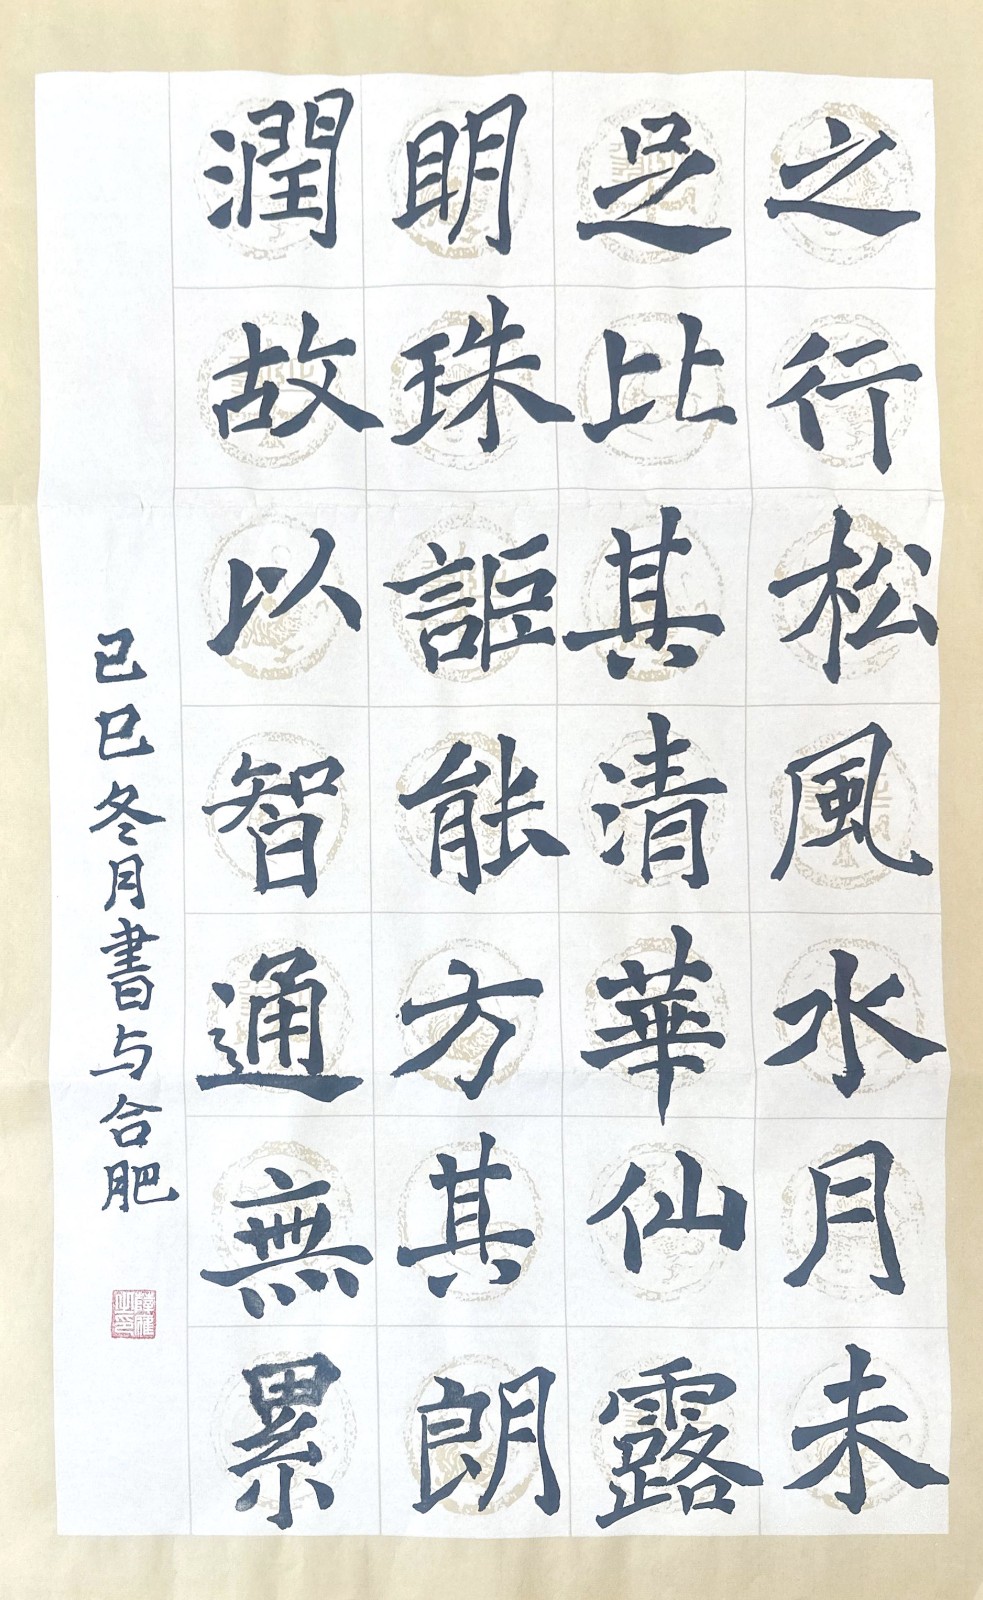 之行松風水月未
足比其清華仙露
明珠詎能方其朗
潤故以智通無累
己巳冬月書与合肥